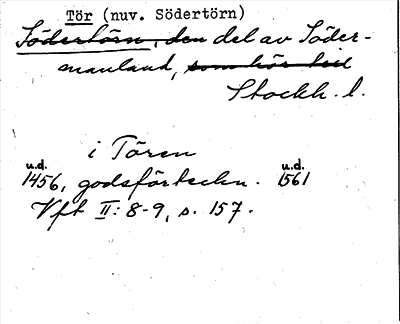 Tör (nuv. Södertörn)
Södertörn, den del av Söder-
manland, som hör till
Stockh. l.
i Tören
u.d. u.d.
1456, godsförteckn. 1561
Vft II: 8-9, s. 157.